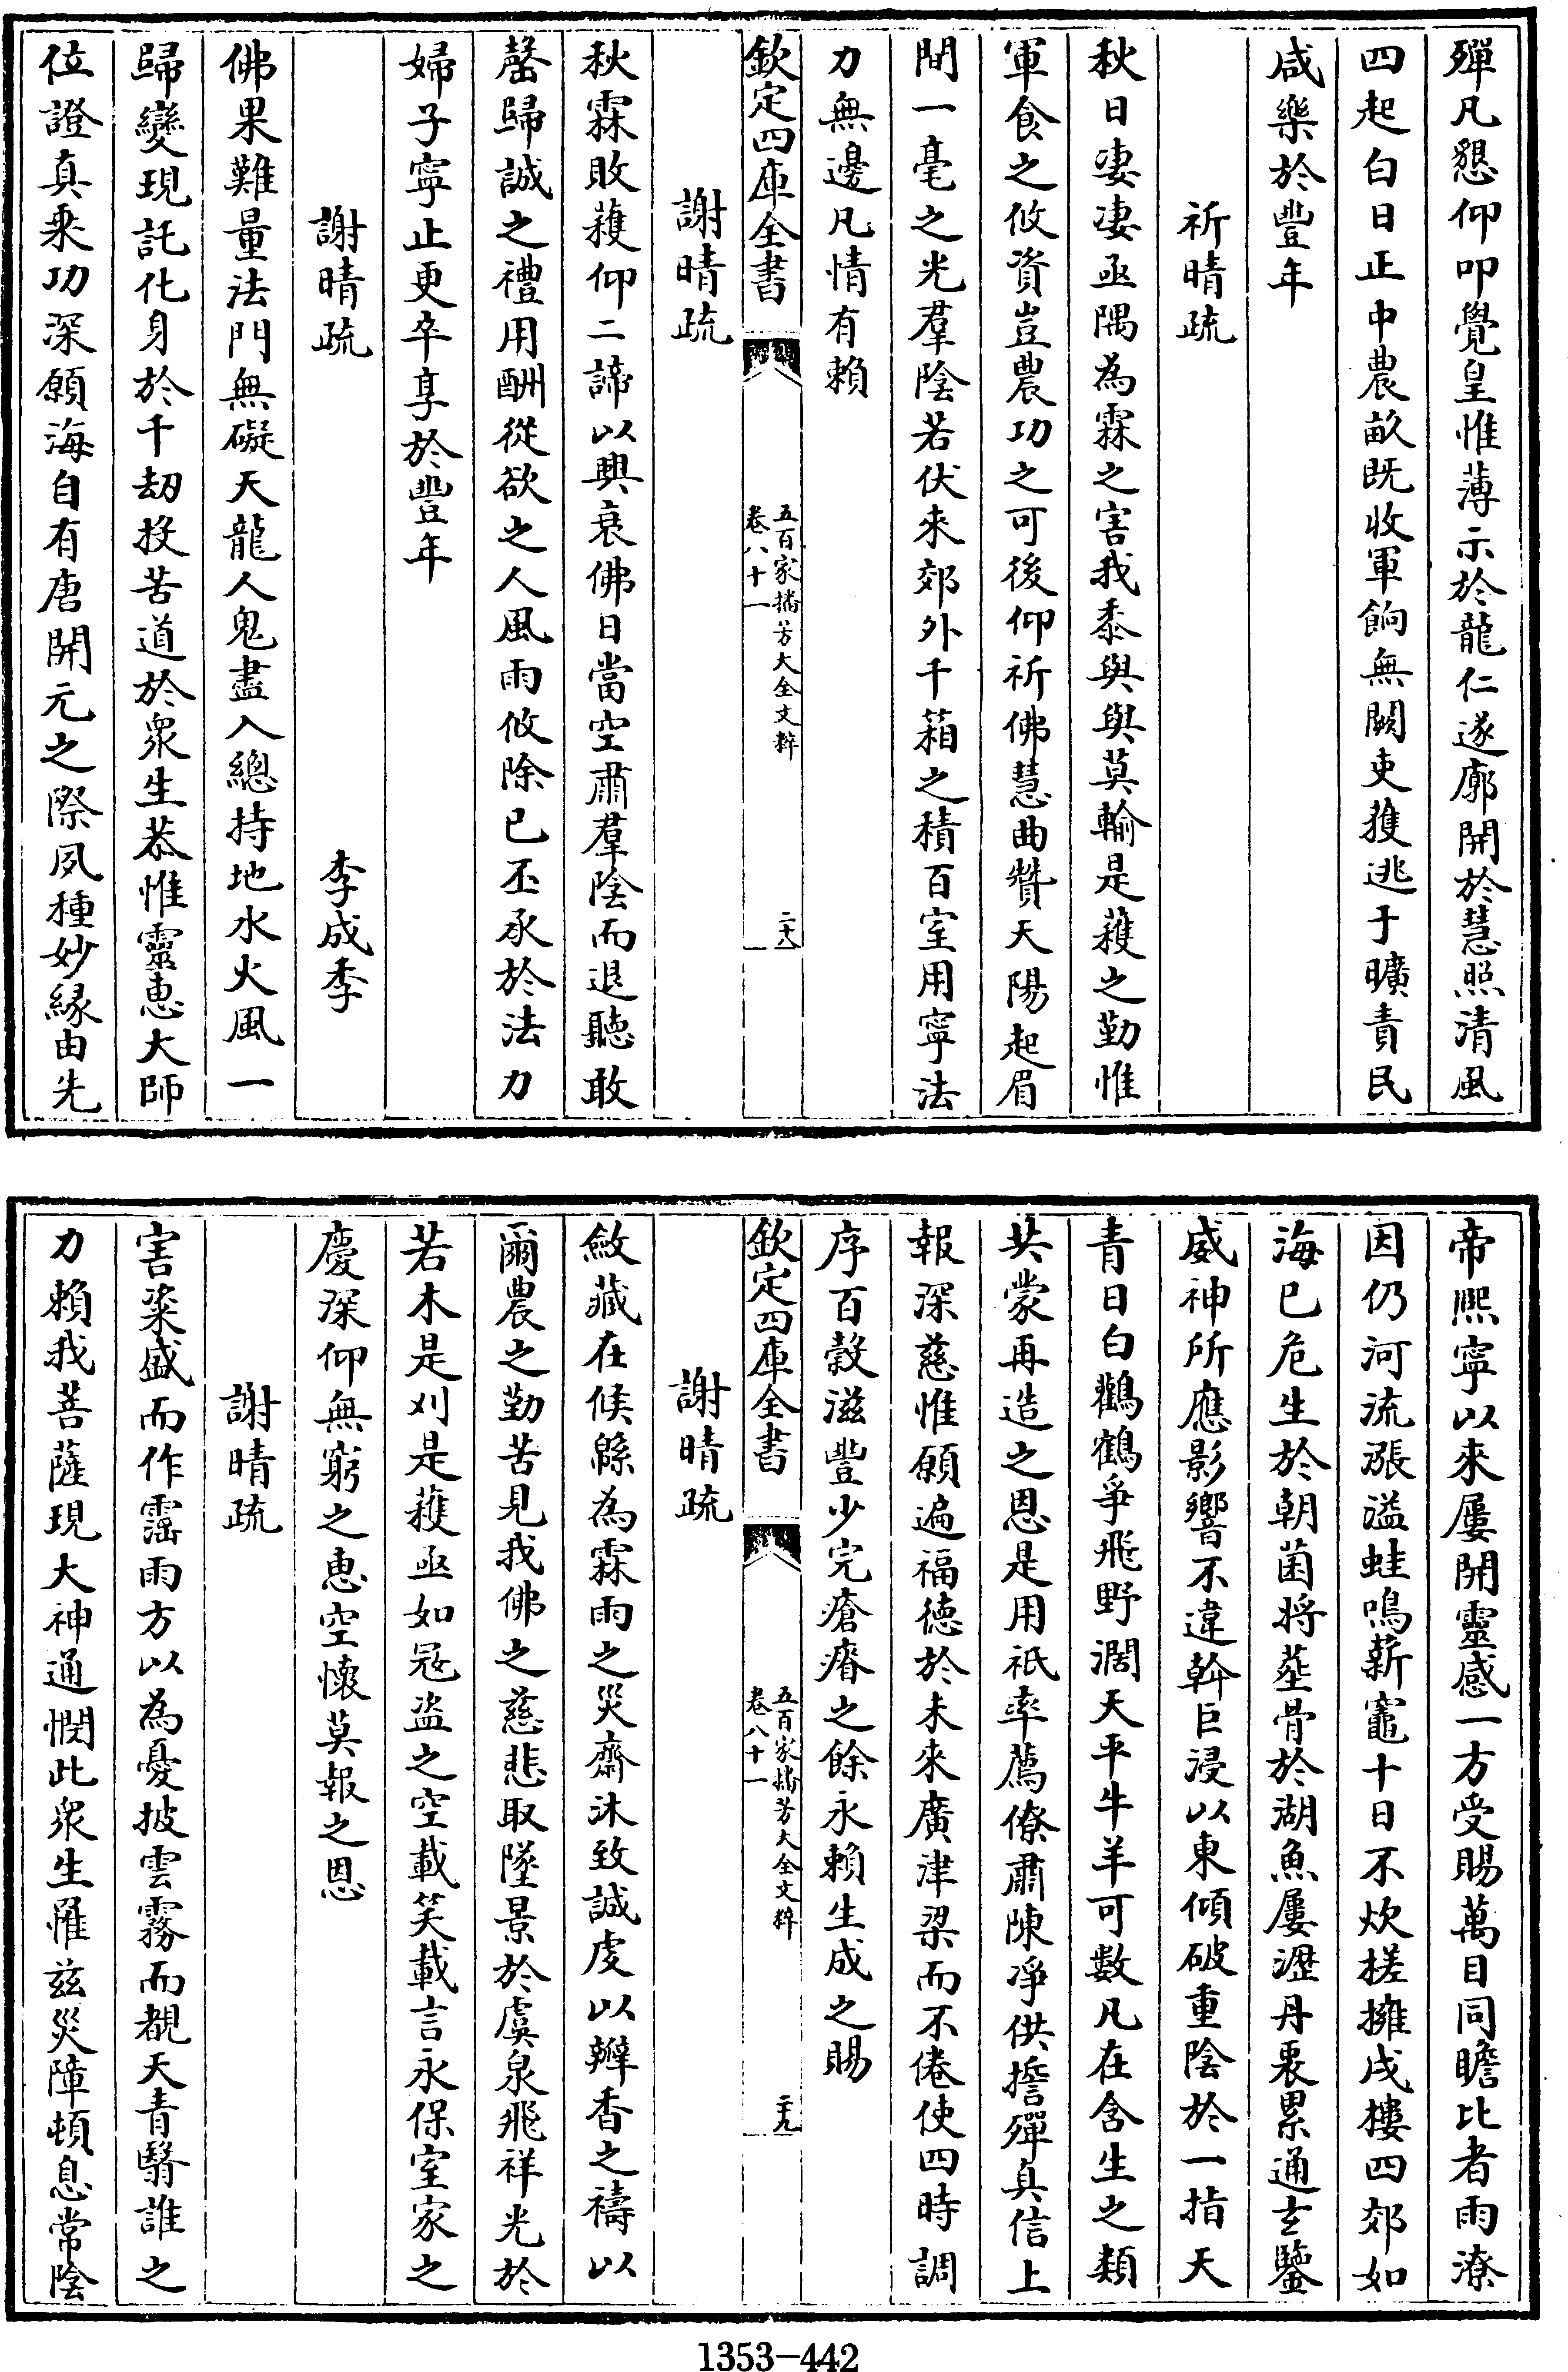 殫凡懇仰叩覺皇惟薄示於龍仁遂廓開於慧照清風
四起白日正中農畝既收軍餉無闕吏獲逃于曠責民
咸樂於豐年
祈晴疏
秋日淒淒亟隅為霖之害我黍與與莫輸是穫之勤惟
軍食之攸資豈農功之可後仰祈佛慧曲贊天陽起眉
間一毫之光羣陰若伏來郊外千箱之積百室用寧法
力無邊凡情有賴
欽定四庫全書
五百家播芳大全文粹
卷八十一
二十八
謝晴疏
秋霖敗穫仰二諦以興哀佛日當空肅羣陰而退聽敢
罄歸誠之禮用酬從欲之人風雨攸除已丕承於法力
婦子寧止更卒享於豐年
謝晴疏
李成季
佛果難量法門無礙天龍人鬼盡入總持地水火風一
歸變現託化身於千劫投苦道於衆生恭惟靈惠大師
位證真乘功深願海自有唐開元之際夙種妙緣由先
帝熙寧以來屢開靈感一方受賜萬目同瞻比者雨潦
因仍河流漲溢蛙鳴薪竈十日不炊槎擁戌樓四郊如
海已危生於朝菌將葬骨於湖魚屢瀝丹衷累通玄鑒
威神所應影響不違斡巨浸以東傾破重陰於一指天
青日白鸛鶴爭飛野濶天平牛羊可數凡在含生之類
共蒙再造之恩是用祇率薦僚肅陳淨供擔殫真信上
報深慈惟願遍福德於未來廣津梁而不倦使四時調
序百穀滋豐少完瘡瘠之餘永賴生成之賜
欽定四庫全書
五百家播芳大全文粹
卷八十一
二十九
謝晴疏
斂藏在候緜為霖雨之災齋沐致誠虔以瓣香之禱以
爾農之勤苦見我佛之慈悲取墜景於虞泉飛祥光於
若木是刈是穫亟如冦盗之空載笑載言永保室家之
慶深仰無窮之惠空懷莫報之恩
謝晴疏
害粢盛而作霪雨方以為憂披雲霧而覩天青翳誰之
力賴我菩薩現大神通憫此衆生罹兹災障頓息常陰
1353-442